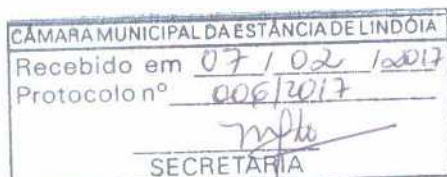 CÂMARA MUNICIPAL DA ESTÂNCIA DE LINDÓIA
Recebido em 07 / 02 / 2017
Protocolo nº 006/2017
SECRETARIA